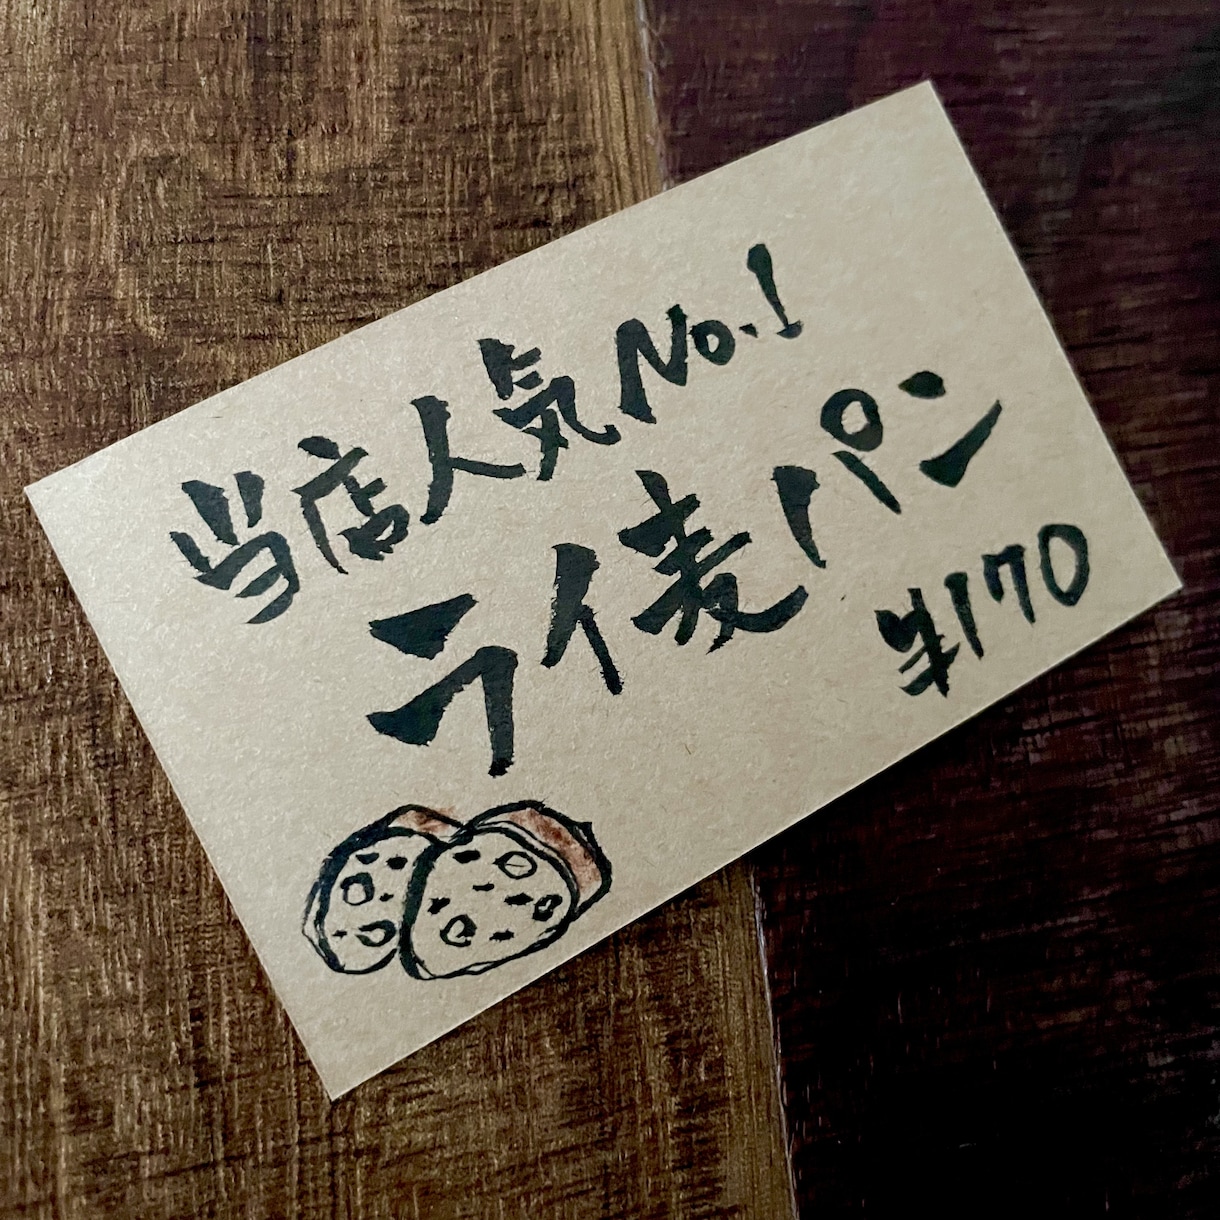 当店人気No.1
ライ麦パン
¥170